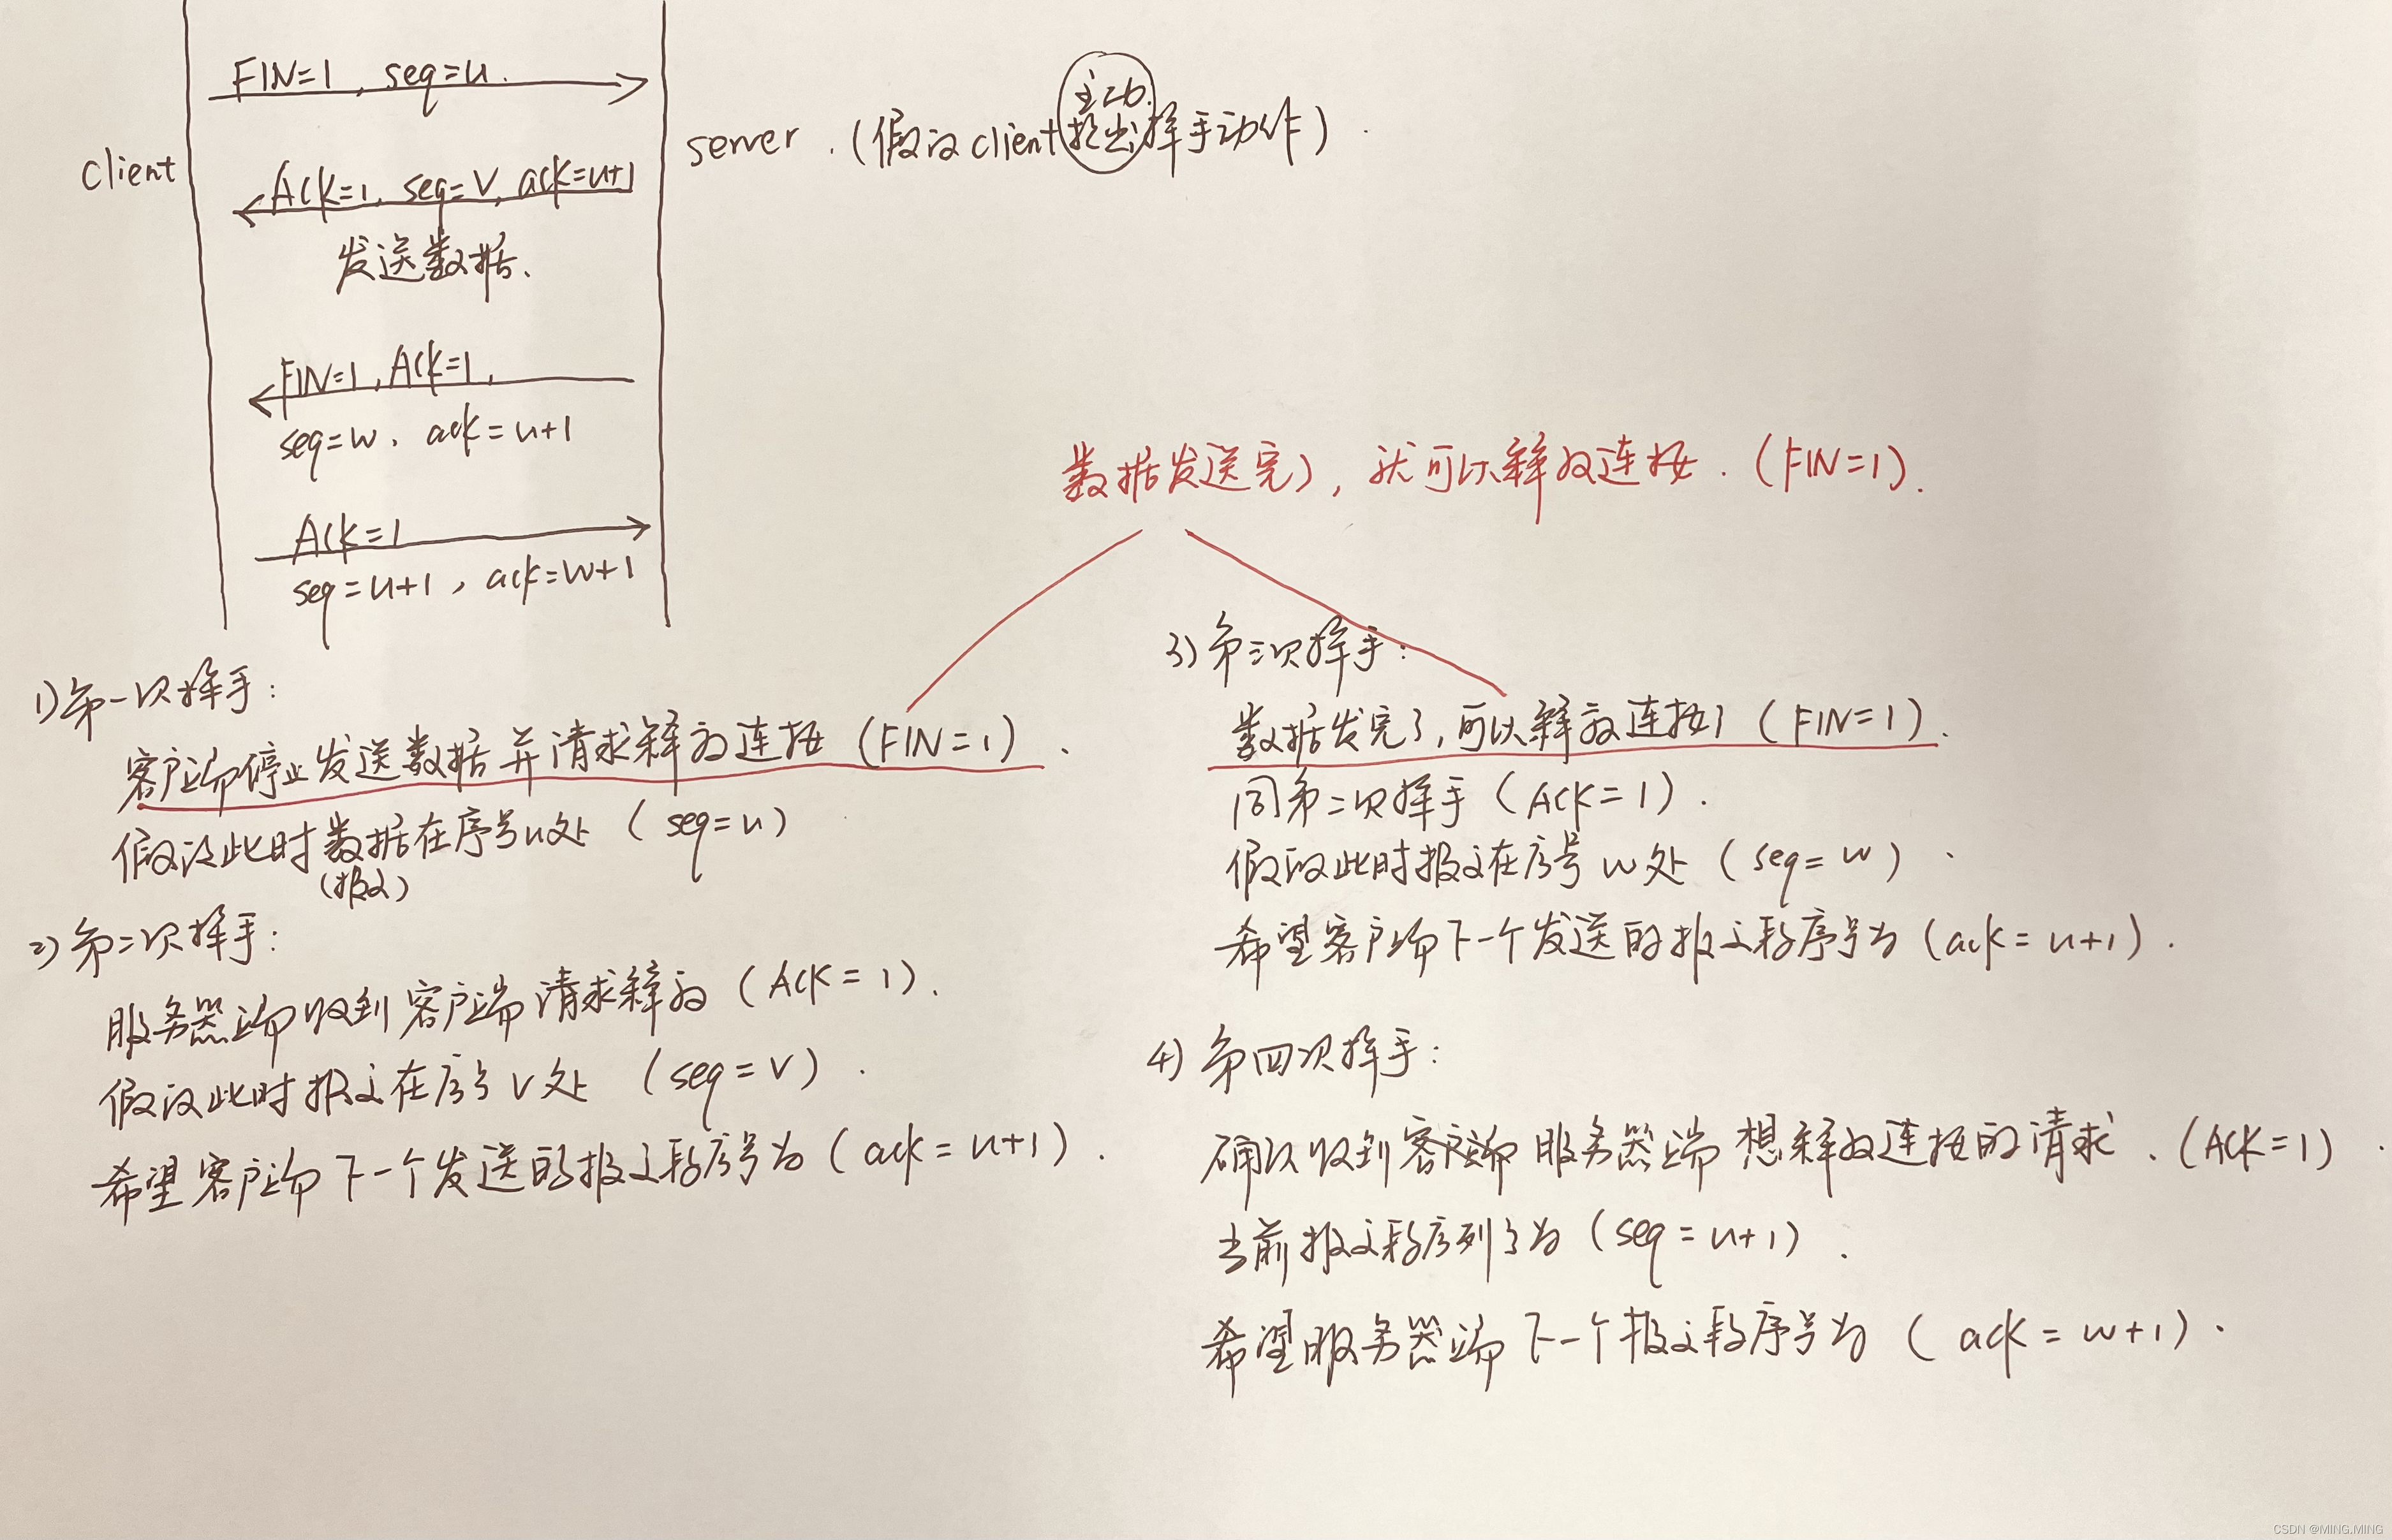 FIN=1, seq=u.
client
server.(假设client主动提出挥手动作).
Ack=1, seq=V, ack=u+1
发送数据、
FIN=1, Ack=1,
seq=w、ack=u+1
Ack=1
seq=u+1, ack=w+1
数据发送完了, 就可以释放连接.(FIN=1).
1)第一次挥手:
客户端停止发送数据并请求释放连接(FIN=1).
假设此时数据在序号u处(seq=u)
(报文)
2)第二次挥手:
服务器端收到客户端请求释放(Ack=1).
假设此时报文在序号V处(seq=V).
希望客户端下一个发送的报文段序号为(ack=u+1).
3)第三次挥手:
数据发完了,可以释放连接了(FIN=1).
同第二次挥手(Ack=1).
假设此时报文在序号w处(seq=w).
希望客户端下一个发送的报文段序号为(ack=u+1).
4)第四次挥手:
确认收到客户端服务器端想释放连接的请求.(Ack=1).
当前报文段序列号为(seq=u+1).
希望服务器端下一个报文段序号为(ack=w+1).
CSDN @MING.MING